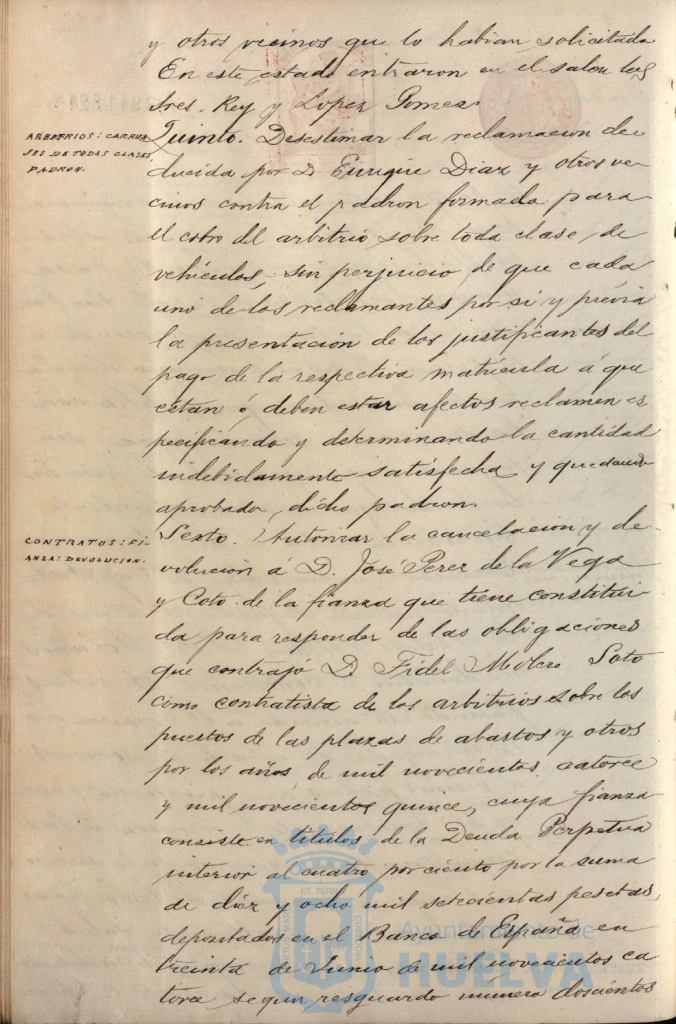 y otros vecinos que lo habian solicitado
En este estado entraron en el salon los
Sres. Rey y Lopez Gomez.
ARBETRIOS: CARRUA
JES DE TODAS CLASES.
PADRON.
Quinto. Desestimar la reclamacion de-
ducida por D Enrique Diaz y otros ve-
cinos contra el padron formado para
el cobro del arbitrio sobre toda clase de
vehiculos, sin perjuicio de que cada
uno de los reclamantes por si y prévia
la presentación de los justificantes del
pago de la respectiva matrícula á que
estan ó deben estar afectos reclamen es
pecificando y determinando la cantidad
indebidamente satisfecha y quedando
aprobado dicho padron.
CONTRATOS: FI-
ANZA: DEVOLUCION.
Sexto. Autorizar la cancelacion y de-
volución á D. José Perez de la Vega
y Coto de la fianza que tiene constitui-
da para responder de las obligaciones
que contrajó D Fidel Molero Soto
como contratista de los arbitrios sobre los
puestos de las plazas de abastos y otros
por los años de mil novecientos catorce
y mil novecientos quince, cuya fianza
consiste en titulos de la Deuda Perpetua
interior al cuatro por ciento por la suma
de diez y ocho mil setecientas pesetas,
depositados en el Banco de España en
treinta de Junio de mil novecientos ca
torce segun resguardo numero doscientos
ET TERRE
Ayuntamiento de
HUELVA